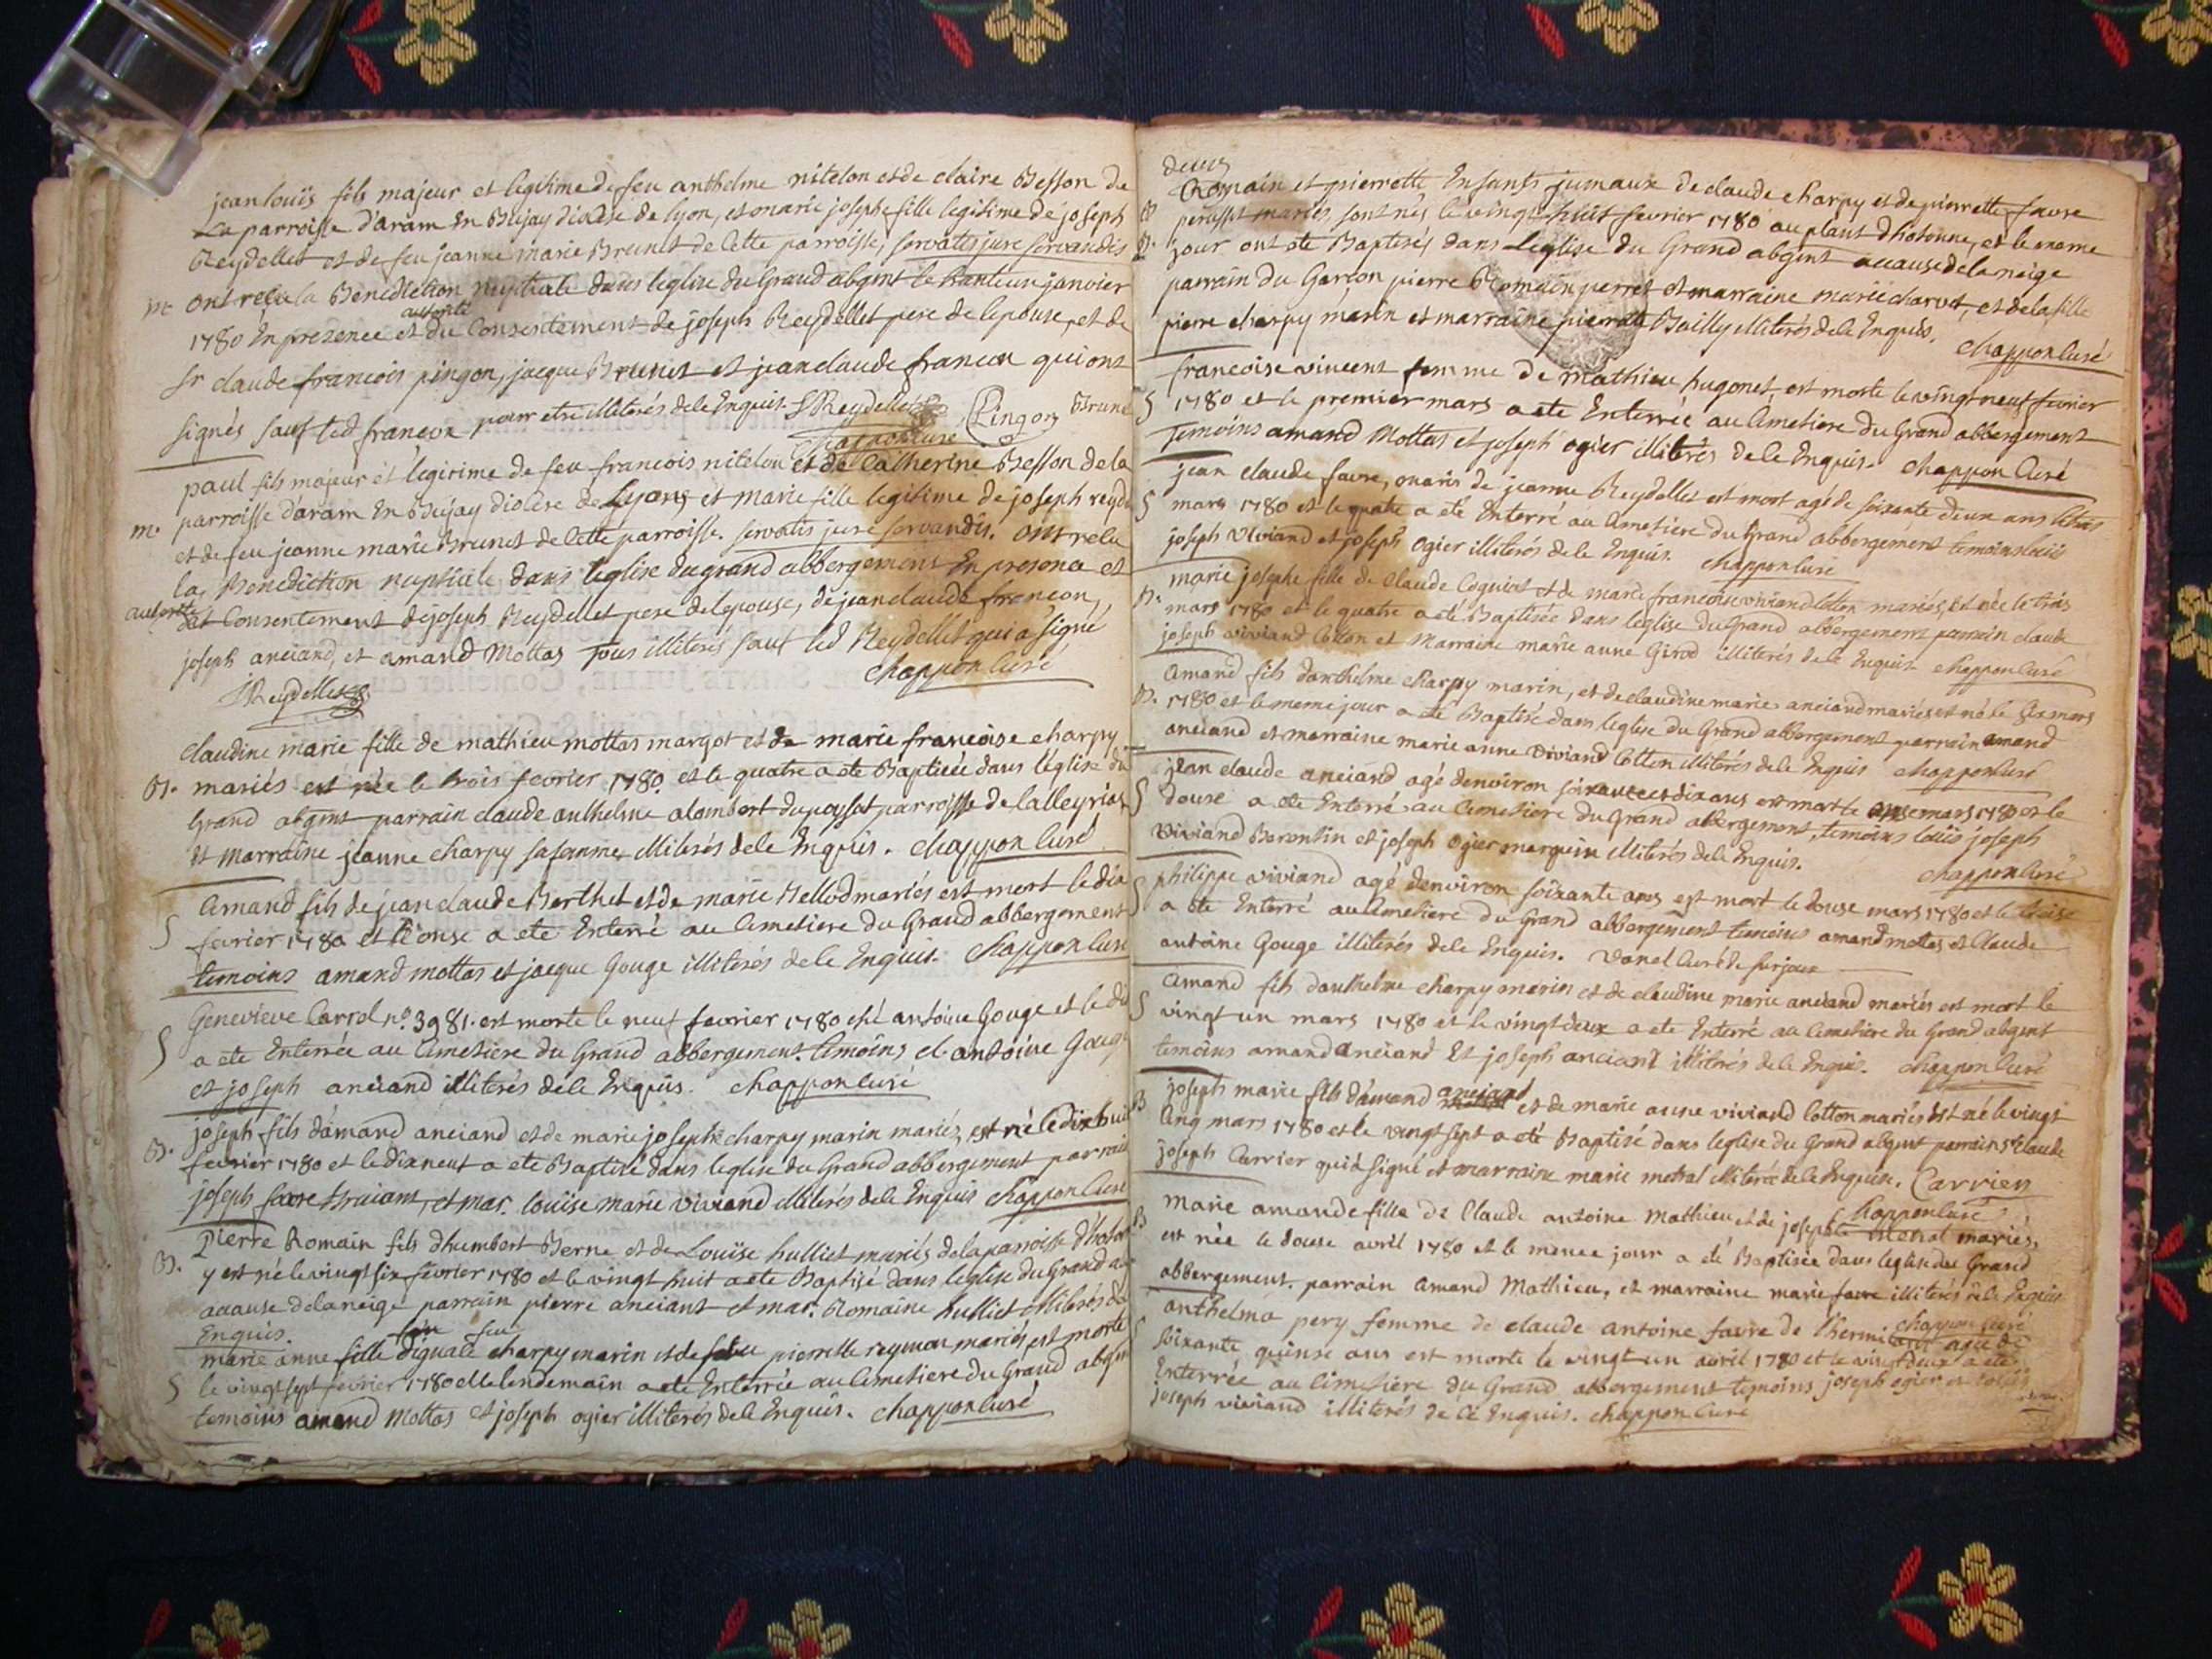 jean louïs fils majeur et legitime de feu anthelme nitelon et de claire Besson de
La parroisse d'aram En Bujay diocese de lyon, et marie josephe fille legitime de joseph
Reydellet et de feu jeanne marie Brunet de Cette parroisse, servatis jure servandis
m. ont reçu la Benediction nuptiale dans leglise du Grand abgmt le trante un janvier
1780 En presence et du Consentement de joseph Reydellet pere de lepouse, et de
autorité
Sr claude francois pingon, jacque Brunet et jean claude francon qui ont
signés sauf led francon pour etre illiterés de le Enquis. JReydellet Pingon Brunet
chappon curé
paul fils majeur et legitime de feu francois nitelon et de Catherine Besson de la
m. parroisse d'aram En Bujay diocese de Lyons et marie fille legitime de joseph reyd
et de feu jeanne marie Brunet de Cette parroisse. servatis jure servandis. ont reçu
la Benediction nuptiale dans leglise du grand abbergement En presence et
autorité et Consentement de joseph Reydellet pere de lepouse, de jean claude francon,
joseph anciand, et amand Mottas Tous illiterés sauf led Reydellet qui a signé
JReydellet chappon curé
claudine marie fille de mathieu mottas margot et de marie francoise charpy
B. mariés est née le trois fevrier 1780. et le quatre a ete Baptisée dans l'église du
Grand abgmt parrain claude anthelme alombert du poysat parroisse de lalleyriat
et marraine jeanne charpy sa femme illiterés de le Enquis. chappon curé
amand fils de jean claude Berthet et de marie Hellod mariés est mort le dix
S fevrier 1780 et le onse a ete Enterré au Cimetiere du Grand abbergement
temoins amand mottas et jacque Gouge illiterés de le Enquis. Chappon curé
Genevieve Carrol no. 3981. est morte le neuf fevrier 1780 ché antoine Gouge et le dix
S a ete Enterrée au Cimetiere du Grand abbergement. temoins cl. antoine Gouge
et joseph anciand illiterés de le Enquis. chappon curé
joseph fils d'amand anciand et de marie josephe charpy marin mariés est né le dix huit
B. fevrier 1780 et le dix neuf a ete Baptisé dans leglise du Grand abbergement parrain
joseph favre, et mar. louïse marie viviand illiterés de le Enquis chappon curé
Pierre Romain fils dhumbert Berne et de Louïse hulliet mariés de la parroisse d'hoton
B. y est né le vingt six fevrier 1780 et le vingt huit a ete Baptisé dans leglise du Grand ab
acause de la neige parrain pierre anciant et mar. Romaine hulliet illiterés de
Enquis.
feu
marie anne fille charpy marin et de pierrette reymon mariés est morte
S le vingt sept fevrier 1780 et le lendemain a ete Enterrée au Cimetiere du Grand abgm
temoins amand Mottas et joseph ogier illiterés de le Enquis. chappon curé
deux
Romain et pierrette Enfants jumaux de claude charpy et de pierrette favre
B perusset mariés sont nés le vingt huit fevrier 1780 au plant dhotonne, et le meme
B. jour ont ete Baptisés dans leglise du Grand abgmt acause de la neige
parrain du Garcon pierre Romain perret et marraine marie charvet, et de la fille
pierre charpy marin et marraine pierrette Bailly illiterés de le Enquis.
chappon curé
francoise vincent femme de mathieu hugonet, est morte le vingt neuf fevrier
S 1780 et le premier mars a ete Enterrée au Cimetiere du Grand abbergement
Temoins amand Mottas et joseph ogier illiterés de le Enquis. chappon curé
jean claude favre, maris de jeanne Reydellet est mort agé de soixante deux ans le trois
S mars 1780 et le quatre a eté Enterré au Cimetiere du Grand abbergement temoins louis
joseph viviand et joseph ogier illiterés de le Enquis. chappon curé
marie josephe fille de Claude Coquint et de marie francoise viviand Cotton mariés, est née le trois
B. mars 1780 et le quatre a eté Baptisée dans leglise du Grand abbergement parrain claude
joseph viviand Cotton et Marraine marie anne Girod illiterés de le Enquis chappon curé
amand fils danthelme charpy marin, et de claudine marie anciand mariés est né le six mars
B. 1780 et le meme jour a eté Baptisé dans leglise du Grand abbergement parrain amand
anciand et marraine marie anne viviand Cotton illiterés de le Enquis chappon curé
jean claude anciand agé denviron soixante et dix ans est mort le onse mars 1780 et le
S douse a ete Enterré au Cimetiere du Grand abbergement, temoins louis joseph
Viviand Barentin et joseph ogier marquin illiterés de le Enquis.
chappon curé
S philippe viviand agé denviron soixante ans est mort le douse mars 1780 et le treise
a ete Enterré au Cimetiere du Grand abbergement temoins amand mottas et Claude
antoine Gouge illiterés de le Enquis. Vanel Curé de surjoux
amand fils danthelme charpy marin et de claudine marie anciand mariés est mort le
S vingt un mars 1780 et le vingt deux a ete Enterré au Cimetiere du Grand abgmt
temoins amand anciand Et joseph anciant illiterés de le Enquis. chappon curé
joseph marie fils d'amand anciand et de marie anne viviand Cotton mariés est né le vingt
B Cinq mars 1780 et le vingt sept a eté Baptisé dans leglise du Grand abgmt parrain Sr Claude
joseph Carrier qui a signé et marraine marie metral illiterée de le Enquise. Carrier
chappon curé
marie amande fille de Claude antoine Mathieu et de josephe metral mariés,
B est née le douse avril 1780 et le meme jour a eté Baptisée dans leglise du Grand
abbergement. parrain amand Mathieu, et marraine marie favre illiterés de le Enquis
chappon curé
anthelma pery femme de claude antoine favre de agée de
S soixante quinse ans est morte le vingt un avril 1780 et le vingt deux a eté
Enterrée au Cimetiere du Grand abbergement temoins joseph ogier et louis
joseph viviand illiterés de le Enquis. chappon curé